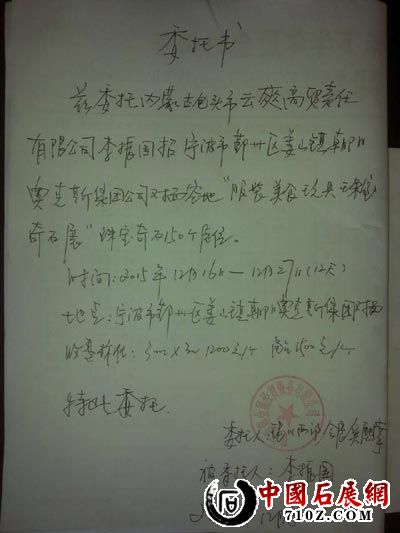 委托书
兹委托内蒙古包头市云飚商贸责任
有限公司李振国招宁波市鄞州区姜山镇朝阳
奥克斯集团公司对面空地"服装美食玩具珠宝
奇石展"珠宝奇石150个展位。
时间:2015年12月16日—12月27日(12天)
地点:宁波市鄞州区姜山镇朝阳奥克斯集团对面
收费标准:3m×2m 1200元/个 1500元/个
特此委托
委托人:
被委托人:李振国
中國石展網
7102.COM